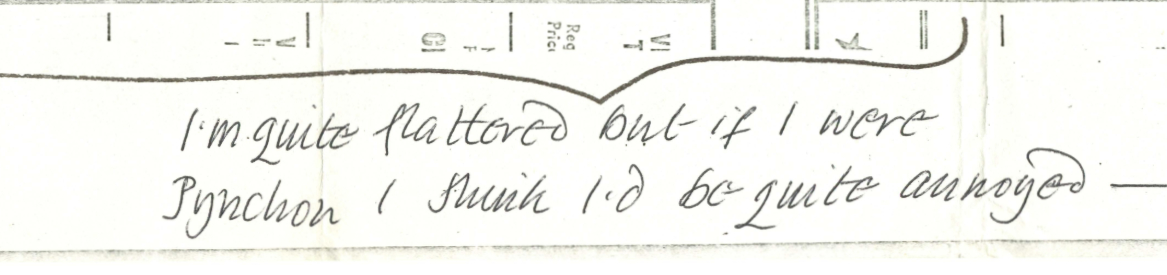 Reg
Price
I'm quite flattered but if I were
Pynchon I think I'd be quite annoyed —